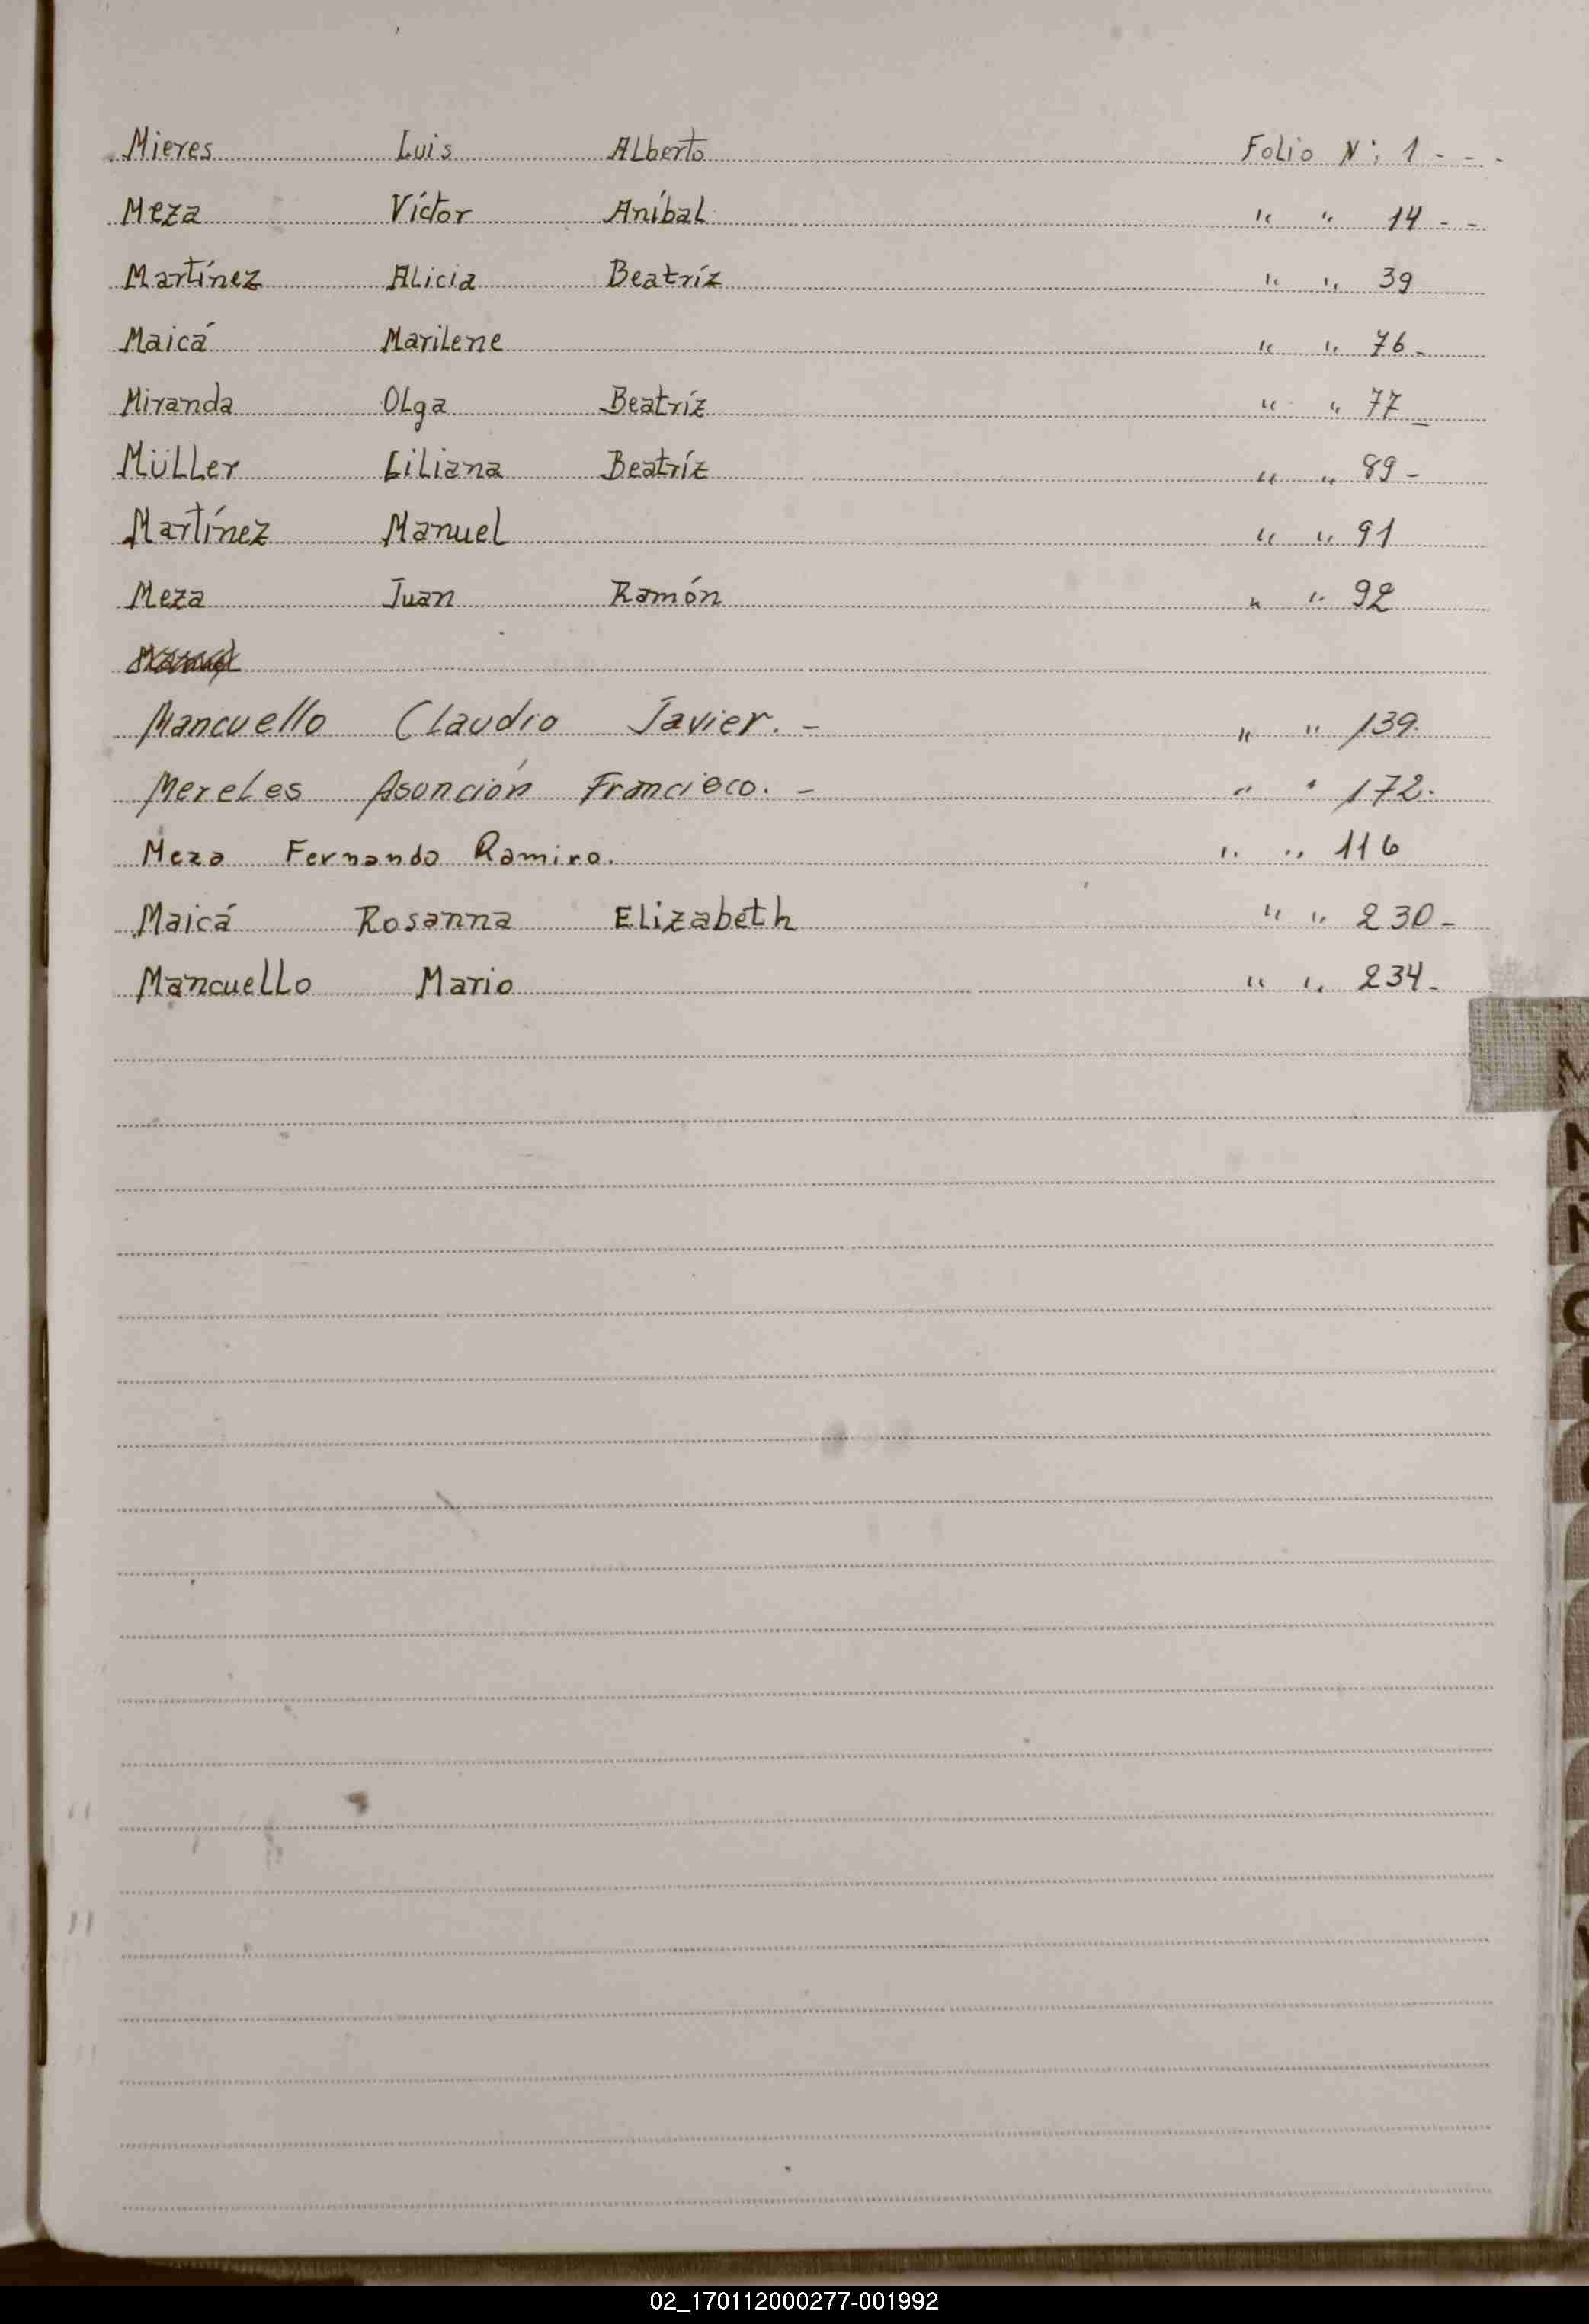 Mieres Luis Alberto Folio N: 1 - - -
Meza Víctor Aníbal " " 14 - -
Martínez Alicia Beatríz " " 39
Maicá Marilene " " 76 -
Miranda Olga Beatríz " " 77 -
Müller Liliana Beatríz " " 89 -
Martínez Manuel " " 91
Meza Juan Ramón " " 92
Mancuello Claudio Javier. - " " 139.
Mereles Asunción Francisco. - " " 172.
Meza Fernando Ramiro. " " 116
Maicá Rosanna Elizabeth " " 230 -
Mancuello Mario " " 234 -
M
N
Ñ
O
02_170112000277-001992